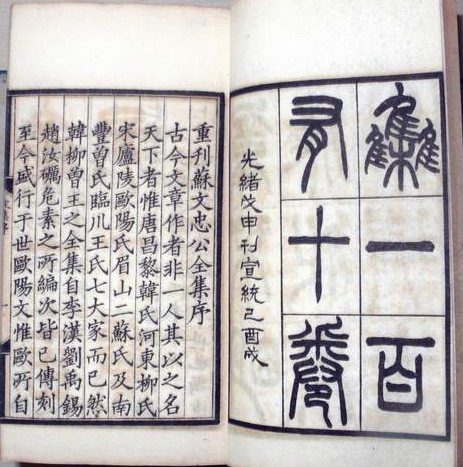 集一百
有十卷
光緒戊申刊宣統己酉成
重刊蘇文忠公全集序
古今文章作者非一人其以之名
天下者惟唐昌黎韓氏河東柳氏
宋廬陵歐陽氏眉山二蘇氏及南
豐曾氏臨川王氏七大家而已然
韓柳曾王之全集自李漢劉禹錫
趙汝礪危素之所編次皆已傳刻
至今盛行于世歐陽文惟歐所自